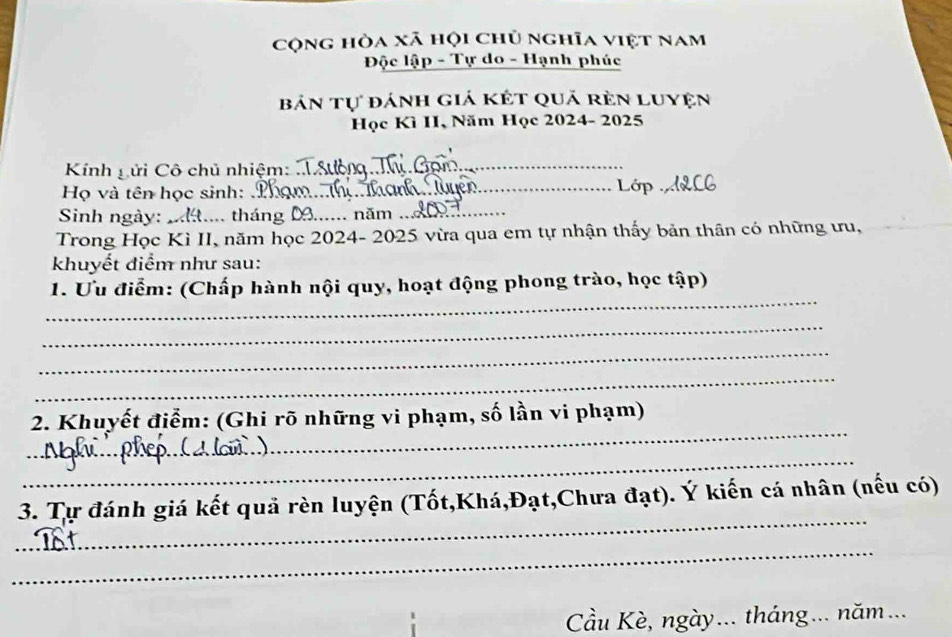 CỘNG HÒA XÃ HỘI CHỦ NGHĨA VIỆT NAM
Độc lập - Tự do - Hạnh phúc
BẢN TỰ ĐÁNH GIÁ KẾT QUẢ RÈN LUYỆN
Học Kì II, Năm Học 2024- 2025
Kính gửi Cô chủ nhiệm: Trương Thị Gấm
Họ và tên học sinh: Phạm Thị Thanh Tuyền Lớp 12C6
Sinh ngày: ... tháng 09 năm 2007
Trong Học Kì II, năm học 2024- 2025 vừa qua em tự nhận thấy bản thân có những ưu,
khuyết điểm như sau:
1. Ưu điểm: (Chấp hành nội quy, hoạt động phong trào, học tập)
2. Khuyết điểm: (Ghi rõ những vi phạm, số lần vi phạm)
Nghỉ phép (1 lần)
3. Tự đánh giá kết quả rèn luyện (Tốt,Khá,Đạt,Chưa đạt). Ý kiến cá nhân (nếu có)
Tốt
Cầu Kè, ngày... tháng... năm...